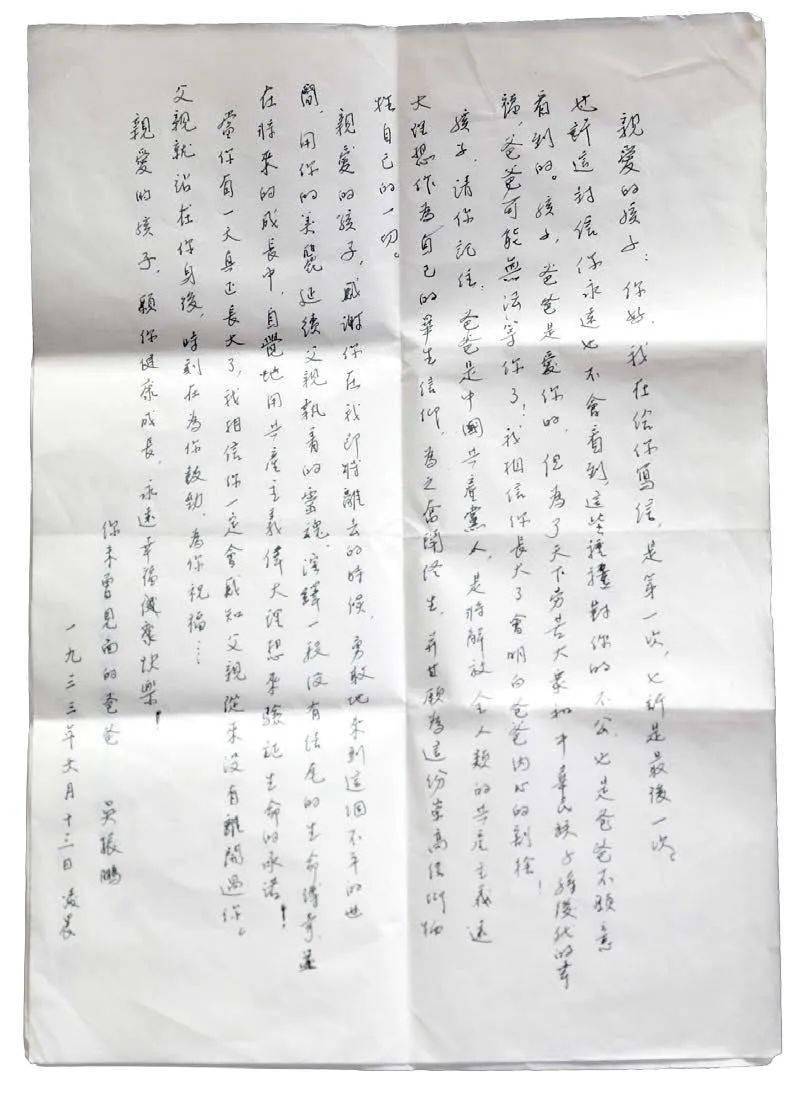 親愛的孩子：你好，我在给你寫信，是第一次，也許是最後一次。
也許這封信你永遠也不會看到，這些種種對你的不公，也是爸爸不願意
看到的。孩子，爸爸是愛你的，但為了天下劳苦大眾和中華民族子孫後代的幸
福，爸爸可能無法等你了！我相信你長大了會明白爸爸内心的割捨！
孩子，请你記住：爸爸是中國共產黨人，是将解放全人類的共產主義远
大理想作為自己的畢生信仰，為之奮鬥终生，并甘願為這份崇高信仰牺
牲自己的一切。
親愛的孩子，感謝你在我即将離去的時候，勇敢地来到這個不平的世
間，用你的美麗延续父親執着的靈魂，演繹一段没有结尾的生命傳奇，並
在将来的成長中，自覺地用共產主義偉大理想来驗証生命的承诺！
當你有一天真正長大了，我相信你一定會感知父親從来没有離開過你。
父親就站在你身後，時刻在為你鼓劲、為你祝福……
親愛的孩子，願你健康成長，永遠幸福健康快樂！
你未曾見面的爸爸 吴振鵬
一九三三年六月十三日凌晨